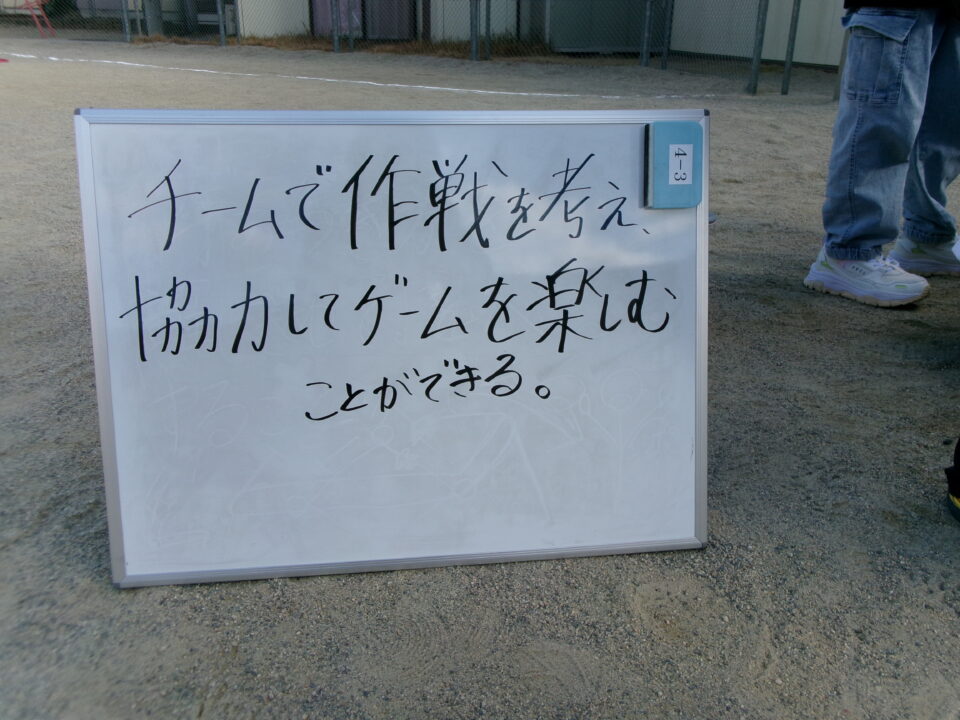 チームで作戦を考え、
協力してゲームを楽しむ
ことができる。
4-3